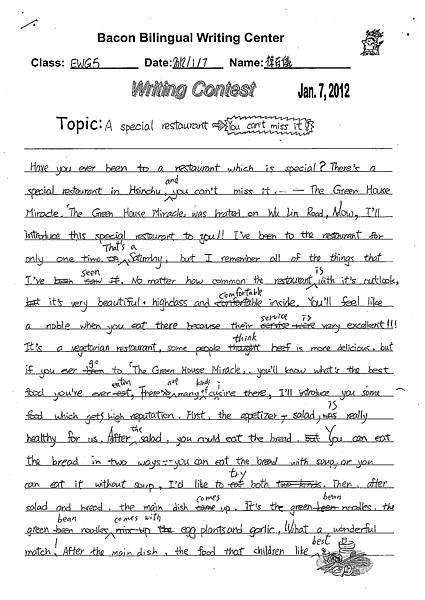 Bacon Bilingual Writing Center
Class: EWG5 Date: 2012/1/7 Name:
Writing Contest Jan. 7, 2012
Topic: A special restaurant ⇒ You can't miss it
Have you ever been to a restaurant which is special? There's a
special restaurant in Hsinchu, and you can't miss it. -- The Green House
Miracle. The Green House Miracle was located on Wu Lin Road, Now, I'll
introduce this special restaurant to you!! I've been to the restaurant for
only one time. That's a Saturday, but I remember all of the things that
I've been seen it. No matter how common the restaurant is with it's outlook,
but it's very beautiful, highclass and comfortable inside. You'll feel like
a noble when you eat there because their service is very excellent!!!
It's a vegetarian restaurant, some people thought think beef is more delicious, but
if you ever go to "The Green House Miracle.. you'll know what's the best
food you're ever eat, eaten There are many kinds of cuisine there, I'll introduce you some
food which gets high reputation. First, the appetizer - salad, is really
healthy for us. After the salad, you could eat the bread. but You can eat
the bread in two ways -- you can eat the bread with soup, or you
can eat it without soup, I'd like to try both two kinds. Then, after
salad and bread, the main dish comes up. It's the green bean noodles. the
green bean noodles comes with mix up the egg plants and garlic. What a wonderful
match! After the main dish, the food that children like best